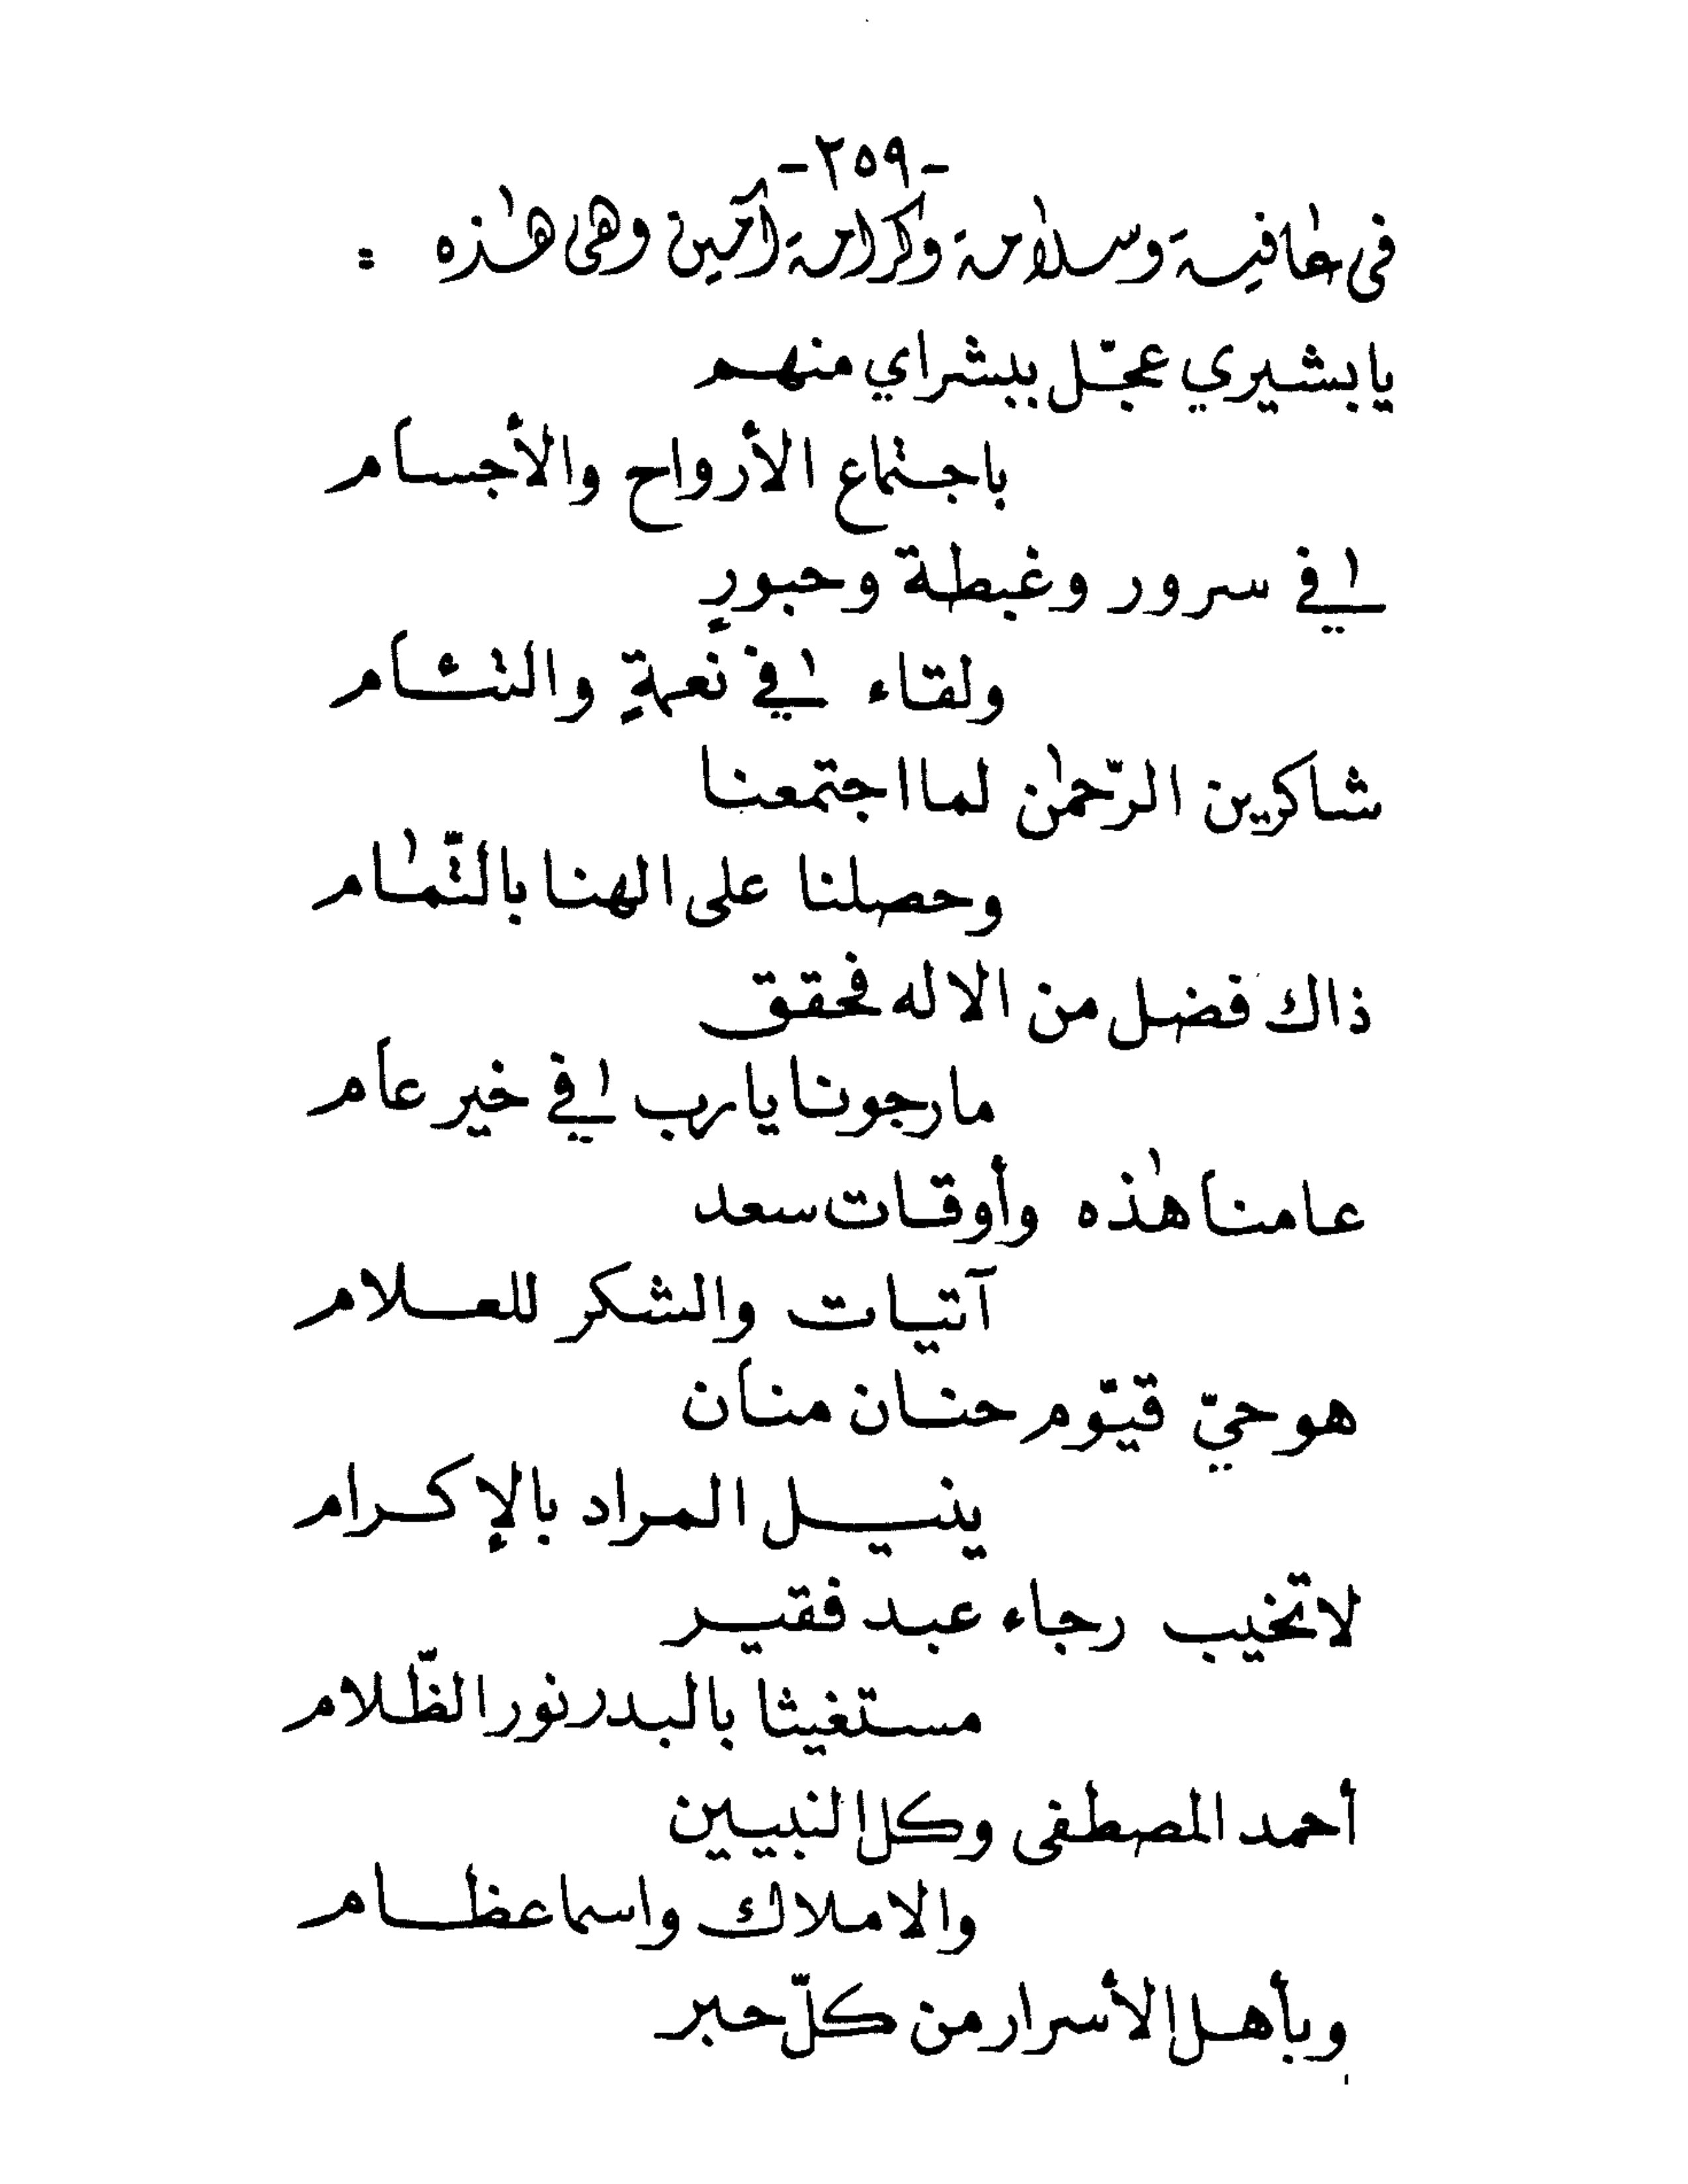 -٢٥٩-
فى عافية وسلامة وكرامة آمين وهى هٰذه :
يا بشيري عجّل ببشراي منهم
باجتماع الأرواح والأجسام
في سرور وغبطة وحبورٍ
ولقاء في نَعمةٍ والتئام
شاكرين الرّحمٰن لما اجتمعنا
وحصلنا على الهنا بالتّمام
ذاك فضل من الاله فحقق
ما رجونا يا رب في خير عام
عامنا هٰذه وأوقات سعد
آتيات والشكر للعلام
هو حيّ قيّوم حنان منان
ينيل المراد بالإكرام
لا تخيب رجاء عبد فقير
مستغيثا بالبدر نور الظّلام
أحمد المصطفى وكل النبيين
والاملاك واسما عظام
وبأهل الأسرار من كلّ حبر